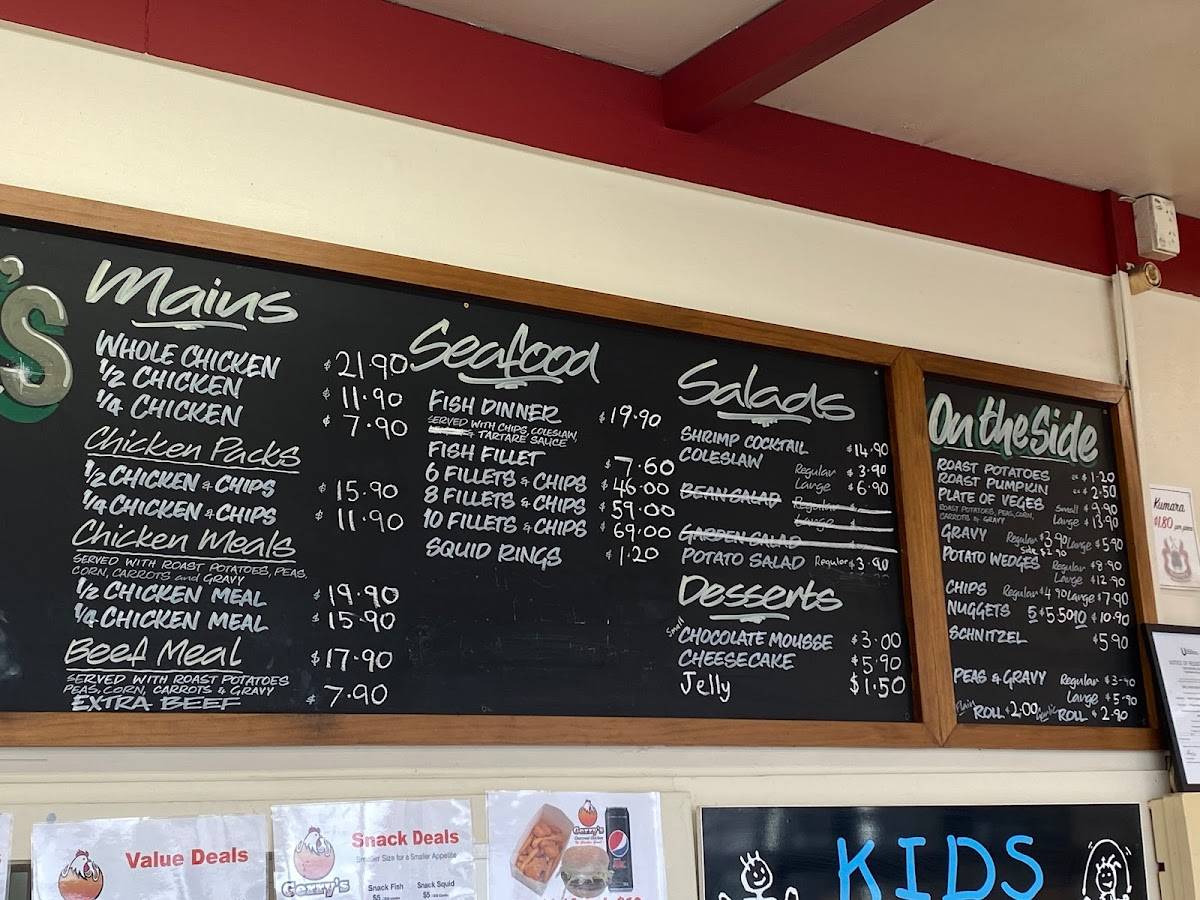 'S
Mains
WHOLE CHICKEN $21.90
1/2 CHICKEN $11.90
1/4 CHICKEN $7.90
Chicken Packs
1/2 CHICKEN & CHIPS $15.90
1/4 CHICKEN & CHIPS $11.90
Chicken Meals
SERVED WITH ROAST POTATOES, PEAS,
CORN, CARROTS and GRAVY
1/2 CHICKEN MEAL $19.90
1/4 CHICKEN MEAL $15.90
Beef Meal $17.90
SERVED WITH ROAST POTATOES
PEAS, CORN, CARROTS & GRAVY
EXTRA BEEF $7.90
Seafood
FISH DINNER $19.90
SERVED WITH CHIPS, COLESLAW,
& TARTARE SAUCE
FISH FILLET $7.60
6 FILLETS & CHIPS $46.00
8 FILLETS & CHIPS $59.00
10 FILLETS & CHIPS $69.00
SQUID RINGS $1.20
Salads
SHRIMP COCKTAIL $14.90
COLESLAW Regular $3.90
Large $6.90
BEAN SALAD Regular $
Large $
GARDEN SALAD
POTATO SALAD Regular $3.90
Desserts
Small
CHOCOLATE MOUSSE $3.00
CHEESECAKE $5.90
Jelly $1.50
On the Side
ROAST POTATOES ea $1.20
ROAST PUMPKIN ea $2.50
PLATE OF VEGES Small $9.90
ROAST POTATOES, PEAS, CORN,
CARROTS & GRAVY Large $13.90
GRAVY Regular $3.90 Large $5.90
Side $2.90
POTATO WEDGES Regular $8.90
Large $12.90
CHIPS Regular $4.90 Large $7.90
NUGGETS 5 $5.50 10 $10.90
SCHNITZEL $5.90
PEAS & GRAVY Regular $3.90
Large $5.90
Plain ROLL $2.00 Garlic ROLL $2.90
Kumara
$1.80
Value Deals
Snack Deals
Smaller Size for a Smaller Appetite
Gerry's
Snack Fish Snack Squid
$5 $5
Gerry's
pepsi
KIDS